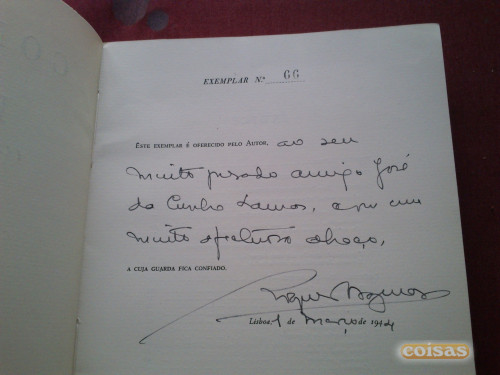 EXEMPLAR N.º 66
ESTE EXEMPLAR É OFERECIDO PELO AUTOR, ao seu
muito prezado amigo José
da Cunha Lamas, com um
muito afectuoso abraço,
A CUJA GUARDA FICA CONFIADO.
Lisboa, 1 de Março de 19
coisas